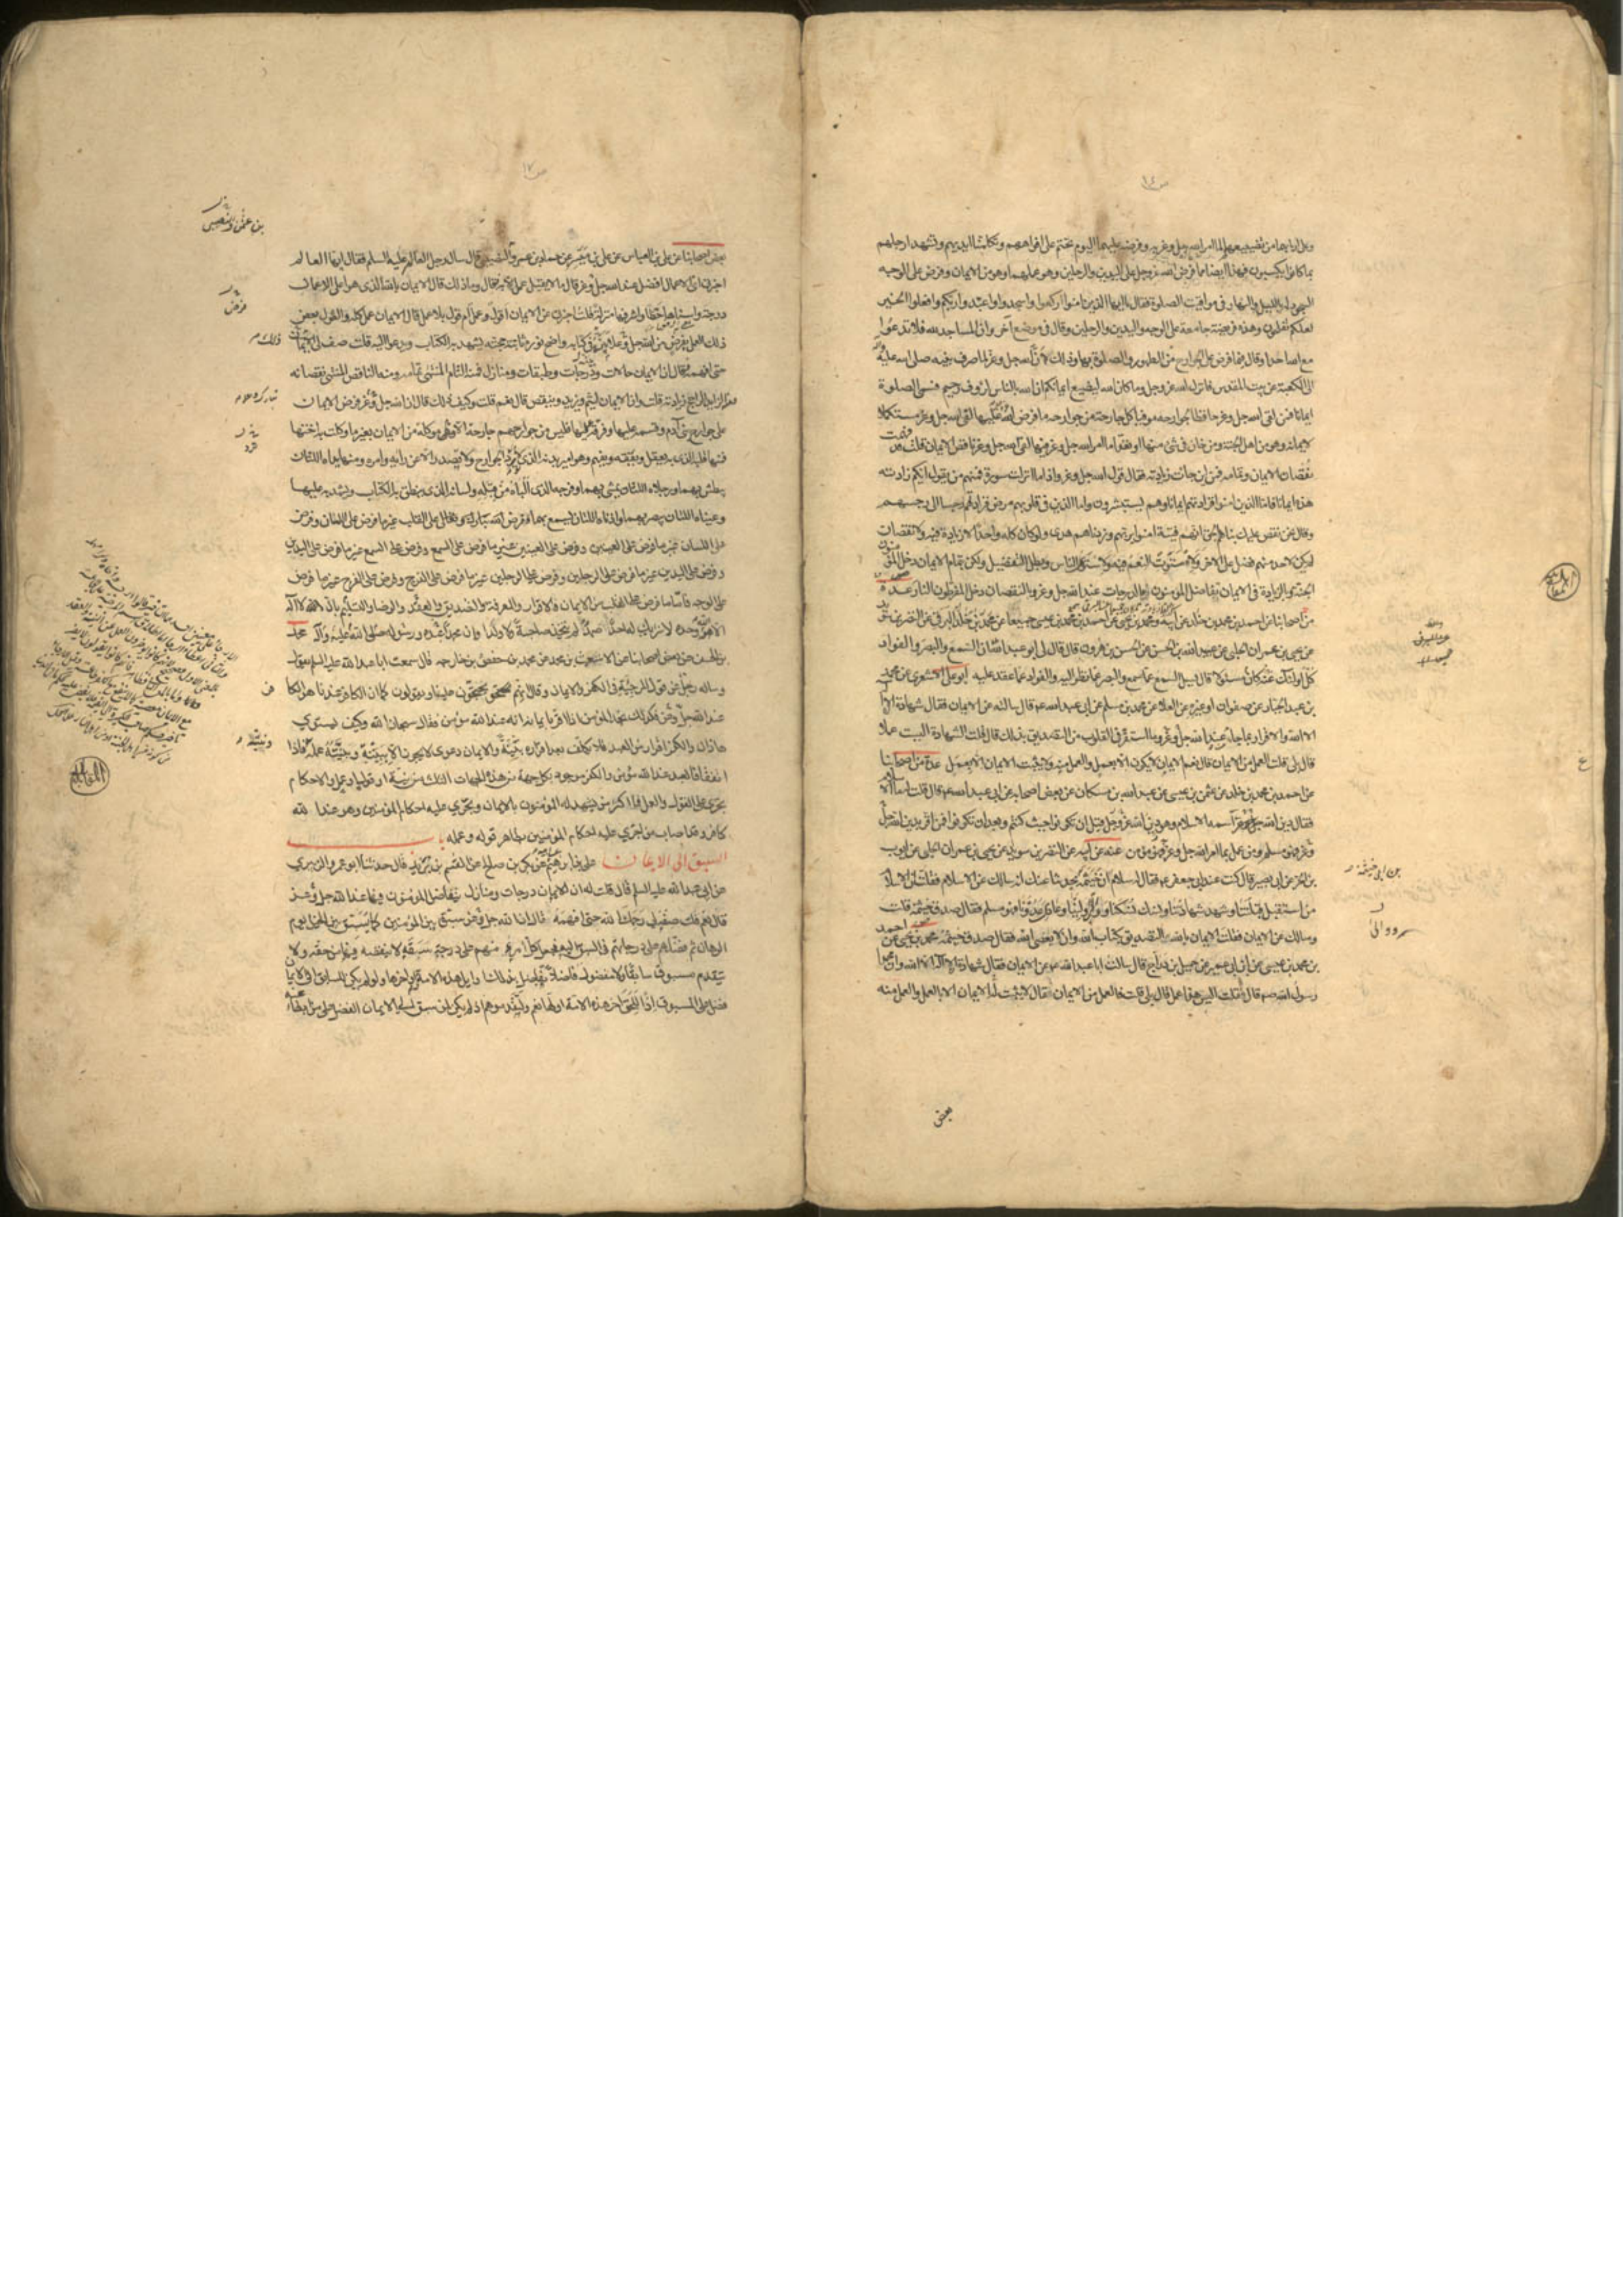 وعلى ارجلهما من تضييعهما لما امر الله جل وعز به وفرضه عليهما اليوم نختم على افواههم وتكلمنا ايديهم وتشهد ارجلهم
بما كانوا يكسبون فهذا ايضا مما فرض الله عز وجل على اليدين والرجلين وهو عملهما وهو من الايمان وفرض على الوجه
السجود له بالليل والنهار فى مواقيت الصلوة فقال يا ايها الذين امنوا اركعوا واسجدوا واعبدوا ربكم وافعلوا الخير
لعلكم تفلحون وهذه فريضة جامعة على الوجه واليدين والرجلين وقال فى موضع آخر وان المساجد لله فلا تدعوا
مع الله احدا وقال فيما فرض على الجوارح من الطهور والصلوة بها وذلك ان الله جل وعز لما صرف نبيه صلى الله عليه
الى الكعبة عن بيت المقدس فانزل الله عز وجل وما كان الله ليضيع ايمانكم ان الله بالناس لرؤف رحيم فسمى الصلوة
ايمانا فمن لقى الله جل وعز حافظا لجوارحه موفيا كل جارحة من جوارحه ما فرض الله عليها لقى الله جل وعز مستكملا
لايمانه وهو من اهل الجنة ومن خان فى شئ منها او تعدى ما امر الله جل وعز فيها لقى الله جل وعز ناقص الايمان قلت قد فهمت
نقصان الايمان وتمامه فمن اين جاءت زيادته فقال قول الله جل وعز واذا ما انزلت سورة فمنهم من يقول ايكم زادته
هذه ايمانا فاما الذين امنوا فزادتهم ايمانا وهم يستبشرون واما الذين فى قلوبهم مرض فزادتهم رجسا الى رجسهم
وقال نحن نقص عليك نبأهم بالحق انهم فتية امنوا بربهم وزدناهم هدى ولو كان كله واحدا لا زيادة فيه ولا نقصان
لم يكن لاحد منهم فضل على الاخر ولاستوت النعم فيه ولاستوى الناس وبطل التفضيل ولكن بتمام الايمان دخل المؤمنون
الجنة وبالزيادة فى الايمان تفاضل المؤمنون بالدرجات عند الله جل وعز وبالنقصان دخل المفرطون النار عدة
من اصحابنا عن احمد بن محمد بن خالد عن ابيه ومحمد بن يحيى عن احمد بن محمد بن عيسى جميعا عن محمد بن خالد البرقى عن النضر بن سويد
عن يحيى بن عمران الحلبى عن عبيد الله بن الحسن عن الحسن بن هرون قال قال لى ابو عبد الله ان السمع والبصر والفواد
كل اولئك كان عنه مسئولا قال يسئل السمع عما سمع والبصر عما نظر اليه والفواد عما عقد عليه ابو على الاشعرى عن محمد
بن عبد الجبار عن صفوان او غيره عن العلاء عن محمد بن مسلم عن ابى عبد الله ع قال سالته عن الايمان فقال شهادة ان لا
اله الا الله والاقرار بما جاء من عند الله جل وعز وما استقر فى القلوب من التصديق بذلك قال قلت الشهادة اليست عملا
قال بلى قلت العمل من الايمان قال نعم الايمان لا يكون الا بعمل والعمل منه ولا يثبت الايمان الا بعمل عدة من اصحابنا
عن احمد بن محمد بن خالد عن عثمن بن عيسى عن عبد الله بن مسكان عن بعض اصحابه عن ابى عبد الله ع قال قلت له ما الاسلام
فقال دين الله جل وعز اسمه الاسلام وهو دين الله عز وجل قبل ان تكونوا حيث كنتم وبعد ان تكونوا فمن اقر بدين الله جل
وعز فهو مسلم ومن عمل بما امر الله جل وعز فهو مؤمن عنه عن ابيه عن النضر بن سويد عن يحيى بن عمران الحلبى عن ايوب
بن الحر عن ابى بصير قال كنت عند ابى جعفر ع فقال له سلام ان خيثمة يحدثنا عنك انه سالك عن الاسلام فقلت ان الاسلام
من استقبل قبلتنا وشهد شهادتنا ونسك نسكنا ووالى ولينا وعادى عدونا فهو مسلم فقال صدق خيثمة قلت
وسالك عن الايمان فقلت الايمان بالله والتصديق بكتاب الله وان لا يعصى الله فقال صدق خيثمة محمد بن يحيى عن احمد
بن محمد بن عيسى عن ابن ابى عمير عن جميل بن دراج قال سالت ابا عبد الله ع عن الايمان فقال شهادة ان لا اله الا الله وان محمدا
رسول الله ص قال قلت اليس هذا عمل قال بلى قلت فالعمل من الايمان فقال لا يثبت له الايمان الا بالعمل والعمل منه
بعض
بعض اصحابنا عن على بن العباس عن على بن ميسر عن حماد بن عمرو النصيبى قال سال رجل العالم عليه السلم فقال ايها العالم
اخبرنى اى الاعمال افضل عند الله جل وعز قال ما لا يقبل عمل الا به فقال وما ذلك قال الايمان بالله الذى هو اعلى الاعمال
درجة واسناها حظا واشرفها منزلة قلت اخبرنى عن الايمان اقول وعمل ام قول بلا عمل قال الايمان عمل كله والقول بعض
ذلك العمل بفرض من الله جل وعز بينه فى كتابه واضح نوره ثابتة حجته يشهد به الكتاب ويدعو اليه قلت صف لى
حتى افهمه فقال ان الايمان حالات ودرجات وطبقات ومنازل فمنه التام المنتهى تمامه ومنه الناقص المنتهى نقصانه
ومنه الزايد الراجح زيادته قلت وان الايمان ليتم ويزيد وينقص قال نعم قلت وكيف ذلك قال ان الله جل وعز فرض الايمان
على جوارح بنى آدم وقسمه عليها وفرقه عليها فليس من جوارحهم جارحة الا وهى موكلة من الايمان بغير ما وكلت به اختها
فمنها قلبه الذى به يعقل ويفقه ويفهم وهو امير بدنه الذى لا ترد الجوارح ولا تصدر الا عن رايه وامره ومنها يداه اللتان
يبطش بهما ورجلاه اللتان يمشى بهما وفرجه الذى الباه من قبله ولسانه الذى ينطق به الكتاب ويشهد به عليها
وعيناه اللتان يبصر بهما واذناه اللتان يسمع بهما وفرض على القلب غير ما فرض على اللسان وفرض
على اللسان غير ما فرض على العينين وفرض على العينين غير ما فرض على السمع وفرض على السمع غير ما فرض على اليدين
وفرض على اليدين غير ما فرض على الرجلين وفرض على الرجلين غير ما فرض على الفرج وفرض على الفرج غير ما فرض
على الوجه فاما ما فرض على القلب من الايمان فالاقرار والمعرفة والتصديق والعقد والرضا والتسليم بان لا اله
الا هو وحده لا شريك له احدا صمدا لم يتخذ صاحبة ولا ولدا وان محمدا عبده ورسوله صلى الله عليه وآله محمد
بن الحسن عن بعض اصحابنا عن الاشعث بن محمد عن محمد بن حفص بن خارجة قال سمعت ابا عبد الله عليه السلم يقول
وساله رجل عن قول المرجئة فى الكفر والايمان وقال انهم يحتجون علينا ويقولون كما ان الكافر عندنا هو الكافر
عند الله جل وعز فكذلك نجد المؤمن اذا اقر بايمانه انه عند الله مؤمن فقال سبحان الله وكيف يستوى
هذان والكفر اقرار من العبد فلا يكلف بعد اقراره ببينة والايمان دعوى لا يجوز الا ببينة وبينته عمله فاذا
اتفقا فالعبد عند الله مؤمن والكفر موجود بكل جهة من هذه الجهات الثلث من نية او قول او عمل والاحكام
تجرى على القول والعمل فما اكثر من يشهد له المؤمنون بالايمان ويجرى عليه احكام المؤمنين وهو عند الله
كافر وقد اصاب من اجرى عليه احكام المؤمنين بظاهر قوله وعمله باب
السبق الى الايمان على بن ابرهيم عن ابيه عن بكر بن صالح عن القسم بن بريد قال حدثنا ابو عمرو الزبيرى
عن ابى عبد الله عليه السلم قال قلت له ان للايمان درجات ومنازل يتفاضل المؤمنون فيها عند الله جل وعز
قال نعم قلت صفه لى رحمك الله حتى افهمه قال ان الله جل وعز سبق بين المؤمنين كما يسبق بين الخيل يوم
الرهان ثم فضلهم على درجاتهم فى السبق اليه فجعل كل امرئ منهم على درجة سبقه لا ينقصه فيها من حقه ولا
يتقدم مسبوق سابقا ولا مفضول فاضلا تفاضل بذلك اوايل هذه الامة واواخرها ولو لم يكن للسابق الى الايمان
فضل على المسبوق اذا للحق آخر هذه الامة اولها نعم ولتقدموهم اذا لم يكن لمن سبق الى الايمان الفضل على من ابطأ عنه